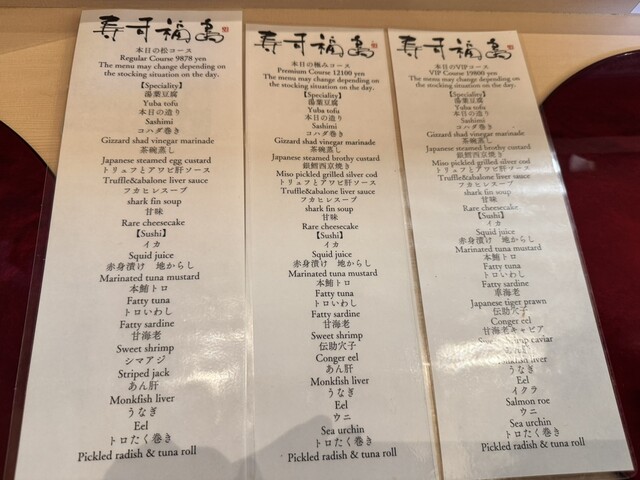 寿司福島
本日の松コース
Regular Course 9878 yen
The menu may change depending on
the stocking situation on the day.
【Speciality】
湯葉豆腐
Yuba tofu
本日の造り
Sashimi
コハダ巻き
Gizzard shad vinegar marinade
茶碗蒸し
Japanese steamed egg custard
トリュフとアワビ肝ソース
Truffle&abalone liver sauce
フカヒレスープ
shark fin soup
甘味
Rare cheesecake
【Sushi】
イカ
Squid juice
赤身漬け 地からし
Marinated tuna mustard
本鮪トロ
Fatty tuna
トロいわし
Fatty sardine
甘海老
Sweet shrimp
シマアジ
Striped jack
あん肝
Monkfish liver
うなぎ
Eel
トロたく巻き
Pickled radish & tuna roll
寿司福島
本日の極みコース
Premium Course 12100 yen
The menu may change depending on
the stocking situation on the day.
【Speciality】
湯葉豆腐
Yuba tofu
本日の造り
Sashimi
コハダ巻き
Gizzard shad vinegar marinade
茶碗蒸し
Japanese steamed brothy custard
銀鱈西京焼き
Miso pickled grilled silver cod
トリュフとアワビ肝ソース
Truffle&abalone liver sauce
フカヒレスープ
shark fin soup
甘味
Rare cheesecake
【Sushi】
イカ
Squid juice
赤身漬け 地からし
Marinated tuna mustard
本鮪トロ
Fatty tuna
トロいわし
Fatty sardine
甘海老
Sweet shrimp
伝助穴子
Conger eel
あん肝
Monkfish liver
うなぎ
Eel
ウニ
Sea urchin
トロたく巻き
Pickled radish & tuna roll
寿司福島
本日のVIPコース
VIP Course 19800 yen
The menu may change depending on
the stocking situation on the day.
【Speciality】
湯葉豆腐
Yuba tofu
本日の造り
Sashimi
コハダ巻き
Gizzard shad vinegar marinade
茶碗蒸し
Japanese steamed brothy custard
銀鱈西京焼き
Miso pickled grilled silver cod
トリュフとアワビ肝ソース
Truffle&abalone liver sauce
フカヒレスープ
shark fin soup
甘味
Rare cheesecake
【Sushi】
イカ
Squid juice
赤身漬け 地からし
Marinated tuna mustard
本鮪トロ
Fatty tuna
トロいわし
Fatty sardine
車海老
Japanese tiger prawn
伝助穴子
Conger eel
甘海老キャビア
Sweet shrimp caviar
あん肝
Monkfish liver
うなぎ
Eel
イクラ
Salmon roe
ウニ
Sea urchin
トロたく巻き
Pickled radish & tuna roll